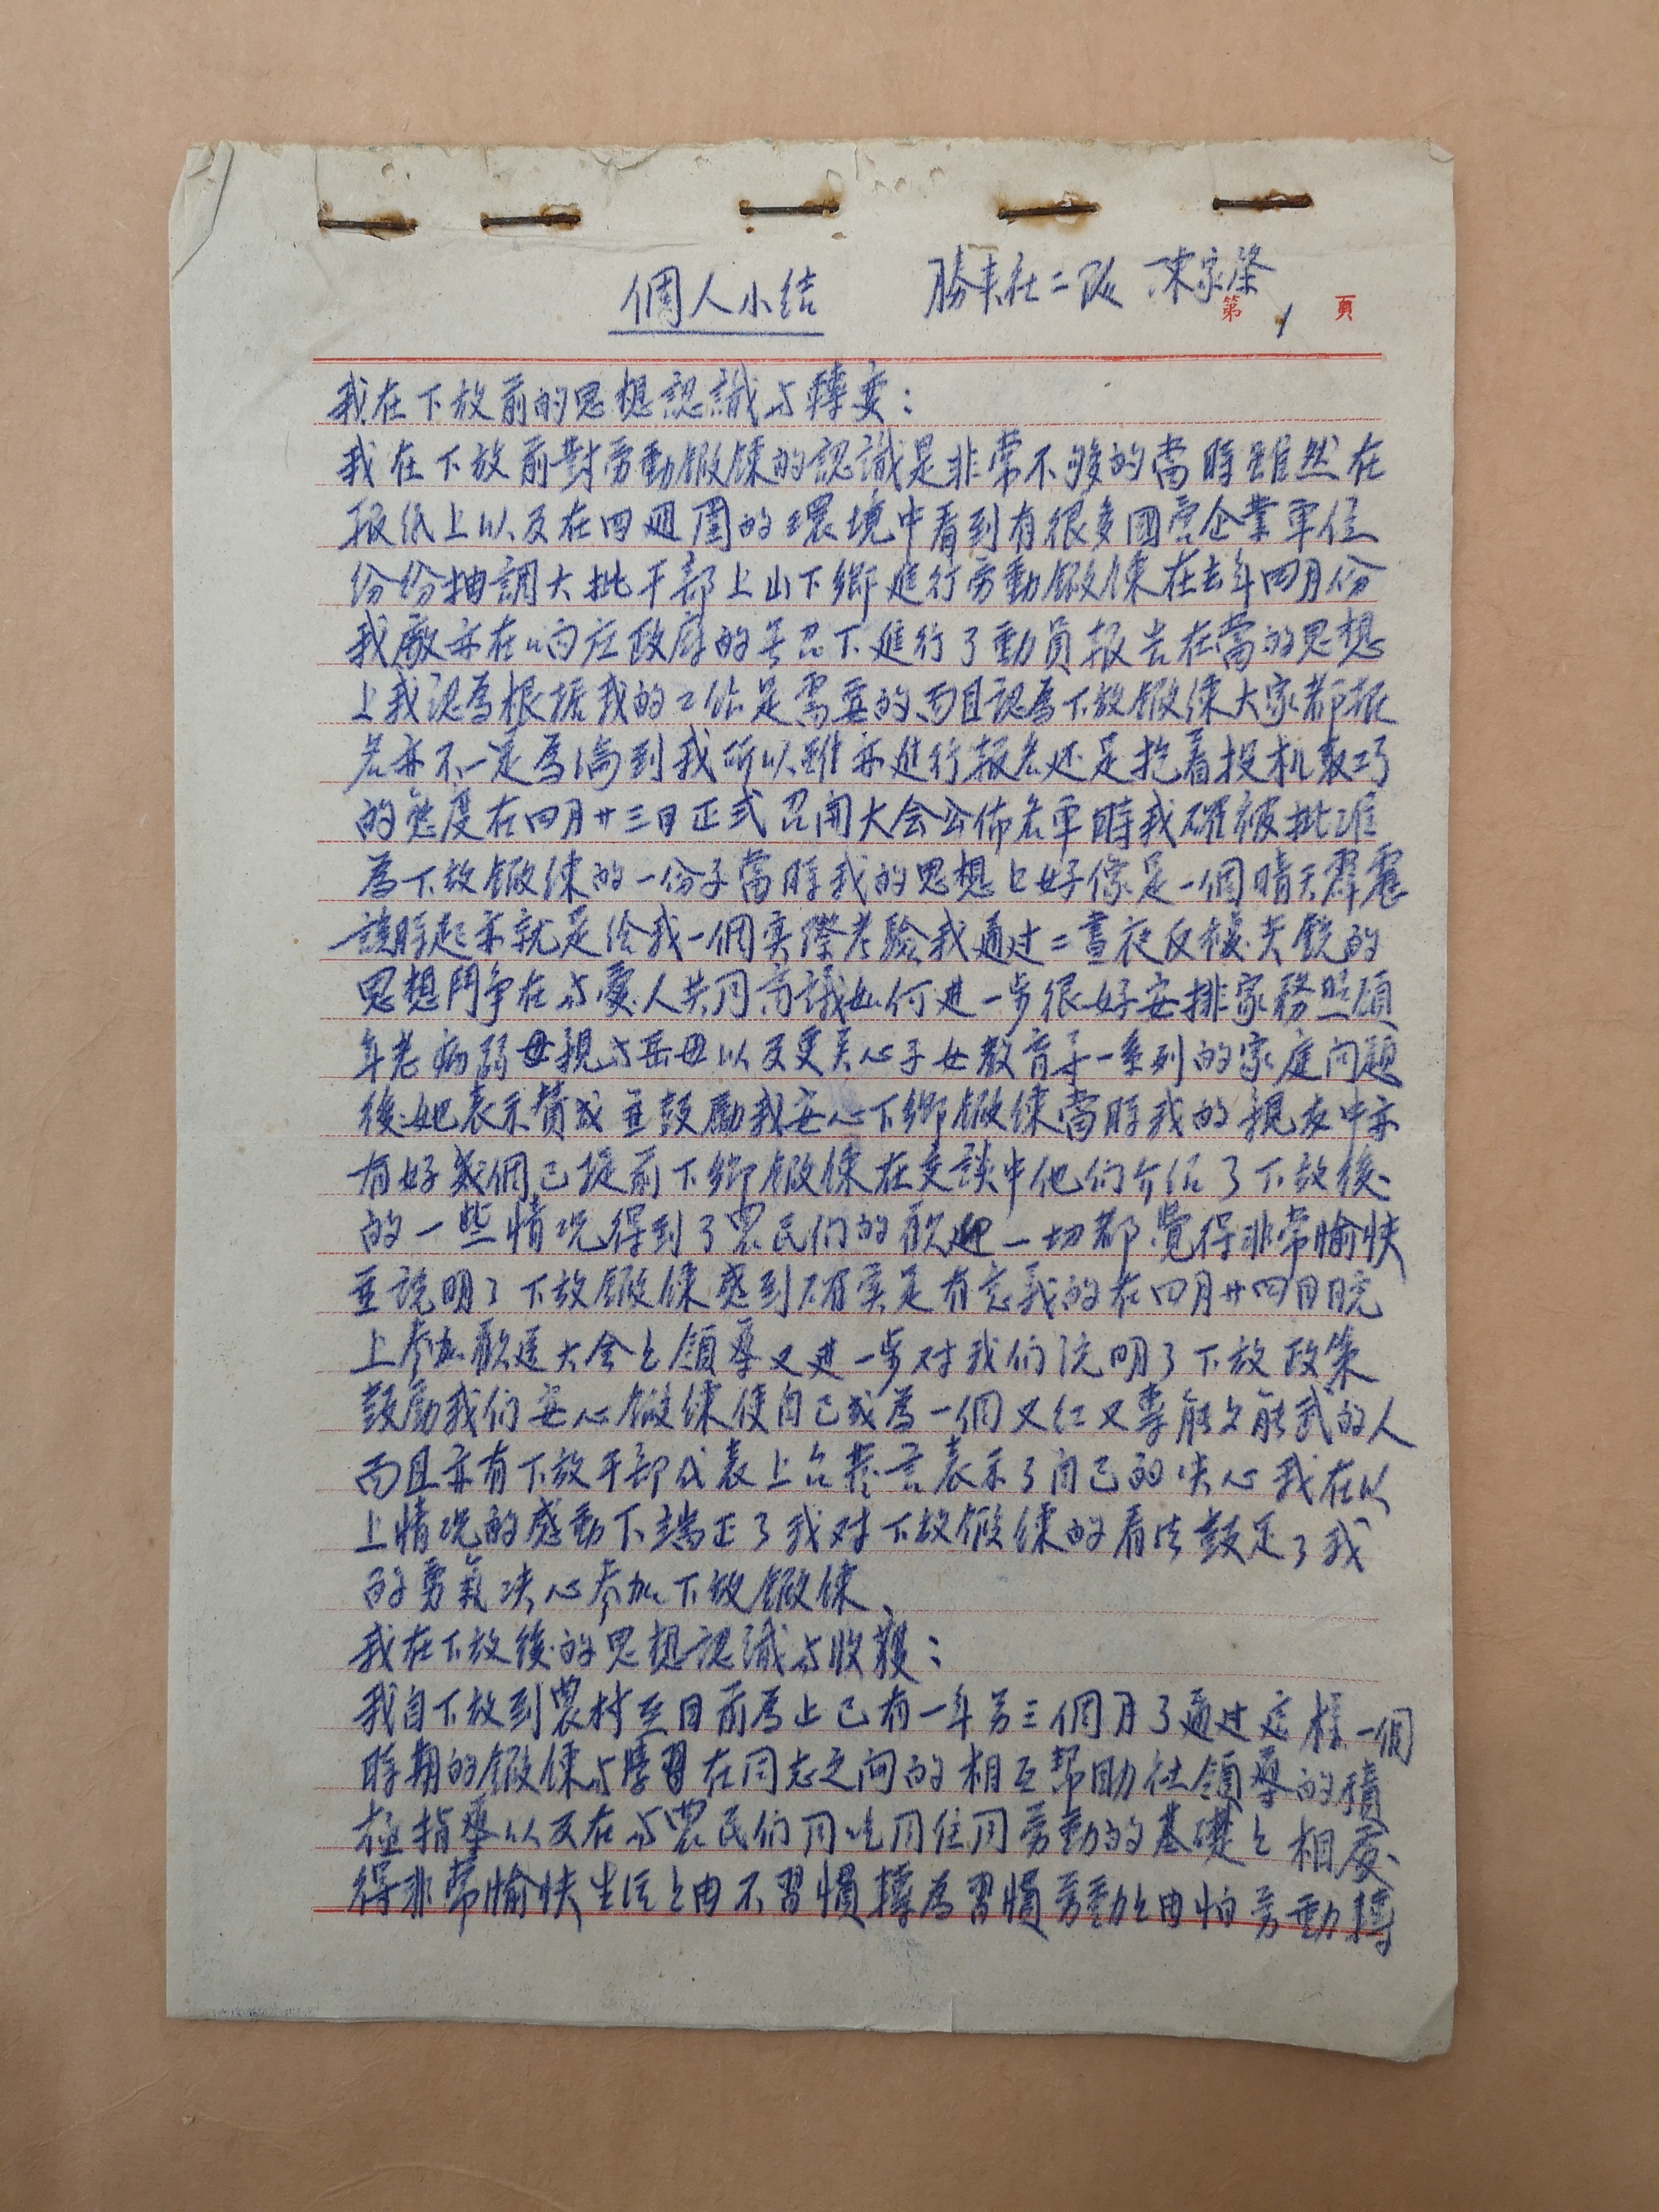 個人小结 勝來社二队 陳家荣
第 1 頁
我在下放前的思想認識与轉变：
我在下放前對劳動鍛鍊的認識是非常不够的當時雖然在
报纸上以及在四週圍的環境中看到有很多國营企業单位
纷纷抽調大批干部上山下鄉進行劳動鍛鍊在去年四月份
我廠亦在响应政府的号召下進行了動員报告在當的思想
上我認為根据我的工作是需要的而且認為下放鍛鍊大家都报
名亦不一定為淪到我所以雖亦進行报名还是抱着投机取巧
的态度在四月廿三日正式召開大会公佈名单時我確被批准
為下放鍛鍊的一份子當時我的思想上好像是一個晴天霹靂
該時起亦就是给我一個实際考驗我通过二晝夜反復尖銳的
思想鬥争在与愛人共同商議如何進一步很好安排家務照顧
年老病弱母親与岳母以及更关心子女教育等一系列的家庭问題
後她表示贊成並鼓勵我安心下鄉鍛鍊當時我的親友中亦
有好幾個已提前下鄉鍛鍊在交談中他们介绍了下放後
的一些情况得到了農民们的歡迎一切都覺得非常愉快
並說明了下放鍛鍊感到確实是有意義的在四月廿四日晚
上参加歡送大会上領導又進一步对我们説明了下放政策
鼓勵我们安心鍛鍊使自己成為一個又红又專能文能武的人
而且亦有下放干部代表上台發言表示了自己的决心我在以
上情况的感動下端正了我对下放鍛鍊的看法鼓足了我
的勇氣决心参加下放鍛鍊、
我在下放後的思想認識与收獲：
我自下放到農村至目前為止已有一年另三個月了通过這樣一個
時期的鍛鍊与學習在同志之间的相互帮助社領導的積
極指導以及在与農民们同吃同住同劳動的基礎上相處
得非常愉快生活上由不習慣轉為習慣劳動上由怕劳動轉